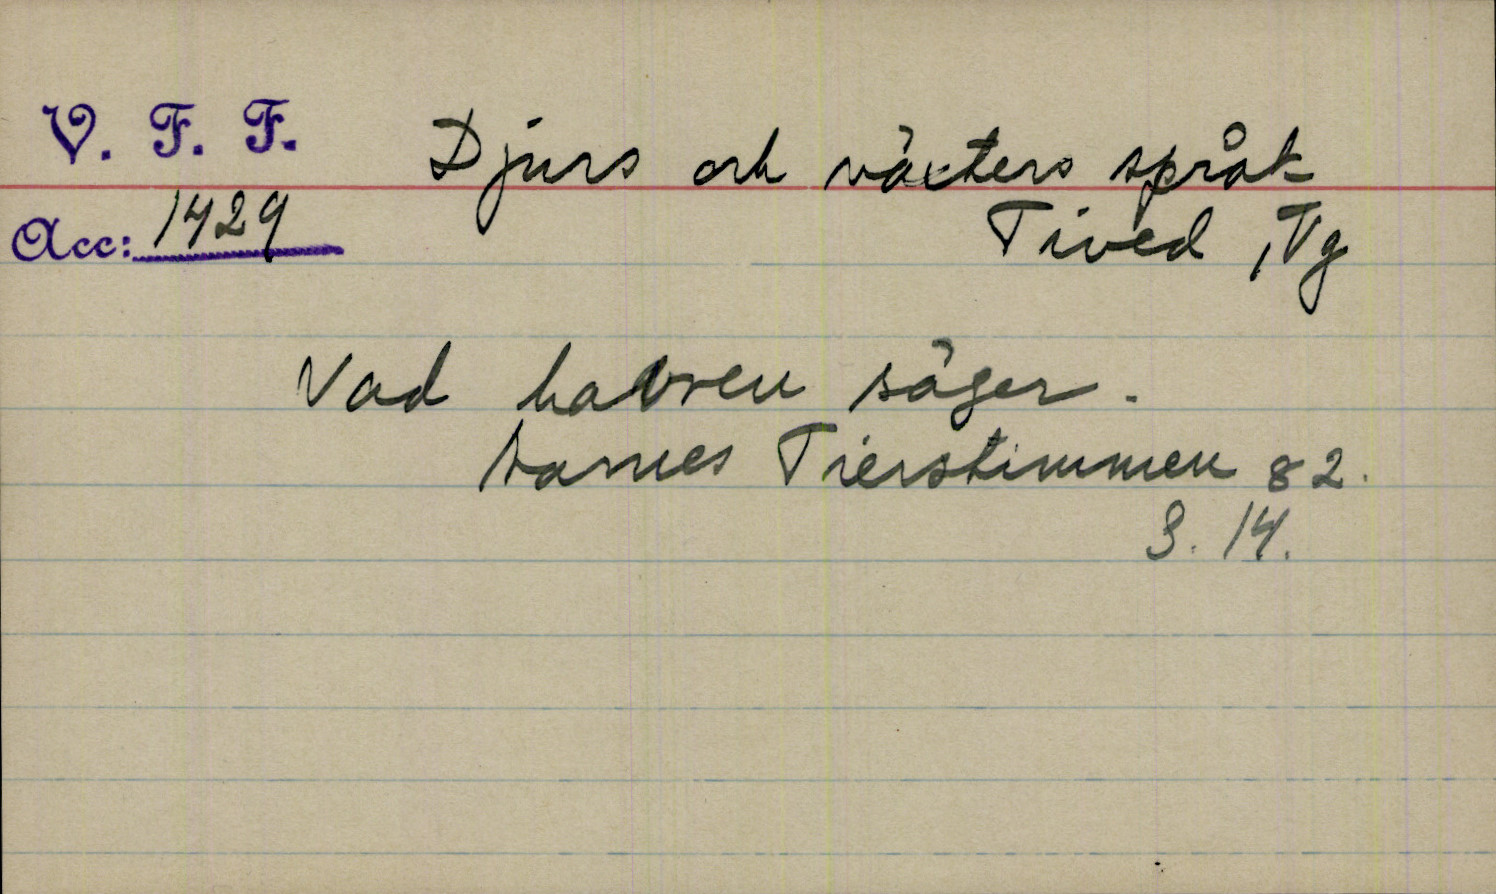 V. F. F.
Djurs och växters språk
Acc: 1429
Tived, Vg
Vad havren säger.
Aarnes Tierstimmen 82.
S. 14.